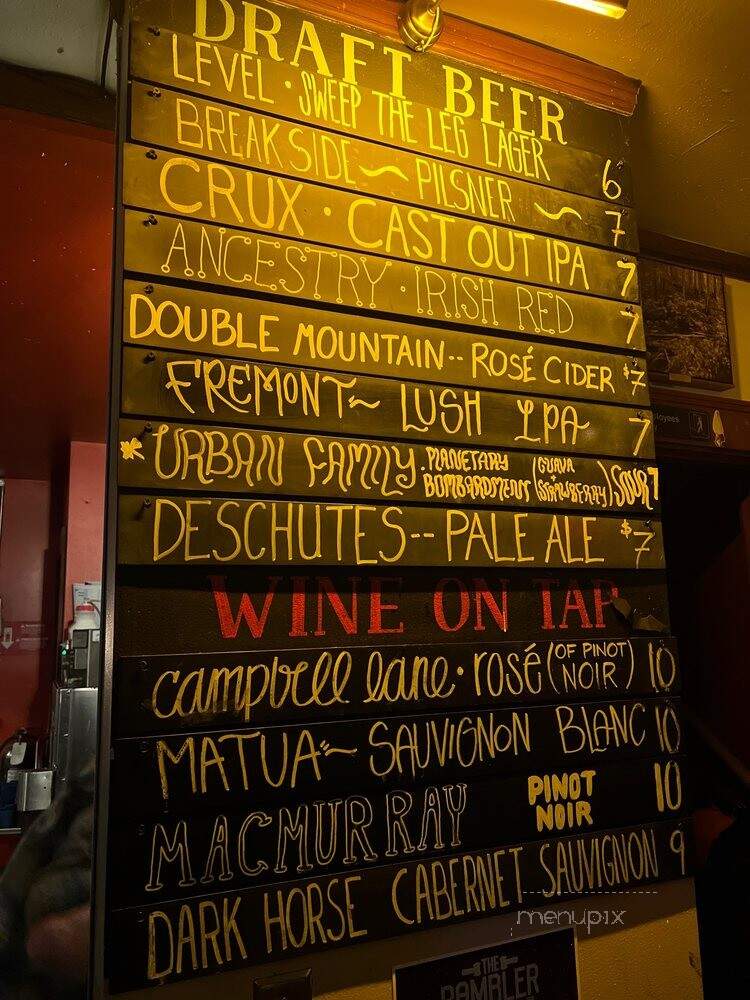 DRAFT BEER
LEVEL · SWEEP THE LEG LAGER 6
BREAKSIDE ~ PILSNER ~ 7
CRUX · CAST OUT IPA 7
ANCESTRY · IRISH RED 7
DOUBLE MOUNTAIN -- ROSÉ CIDER $7
FREMONT ~ LUSH IPA 7
URBAN FAMILY · PLANETARY BOMBARDMENT (GUAVA + STRAWBERRY) SOUR 7
DESCHUTES -- PALE ALE $7
WINE ON TAP
campbell lane · rosé (OF PINOT NOIR) 10
MATUA ~ SAUVIGNON BLANC 10
MACMURRAY PINOT NOIR 10
DARK HORSE CABERNET SAUVIGNON 9
menupix
THE
RAMBLER